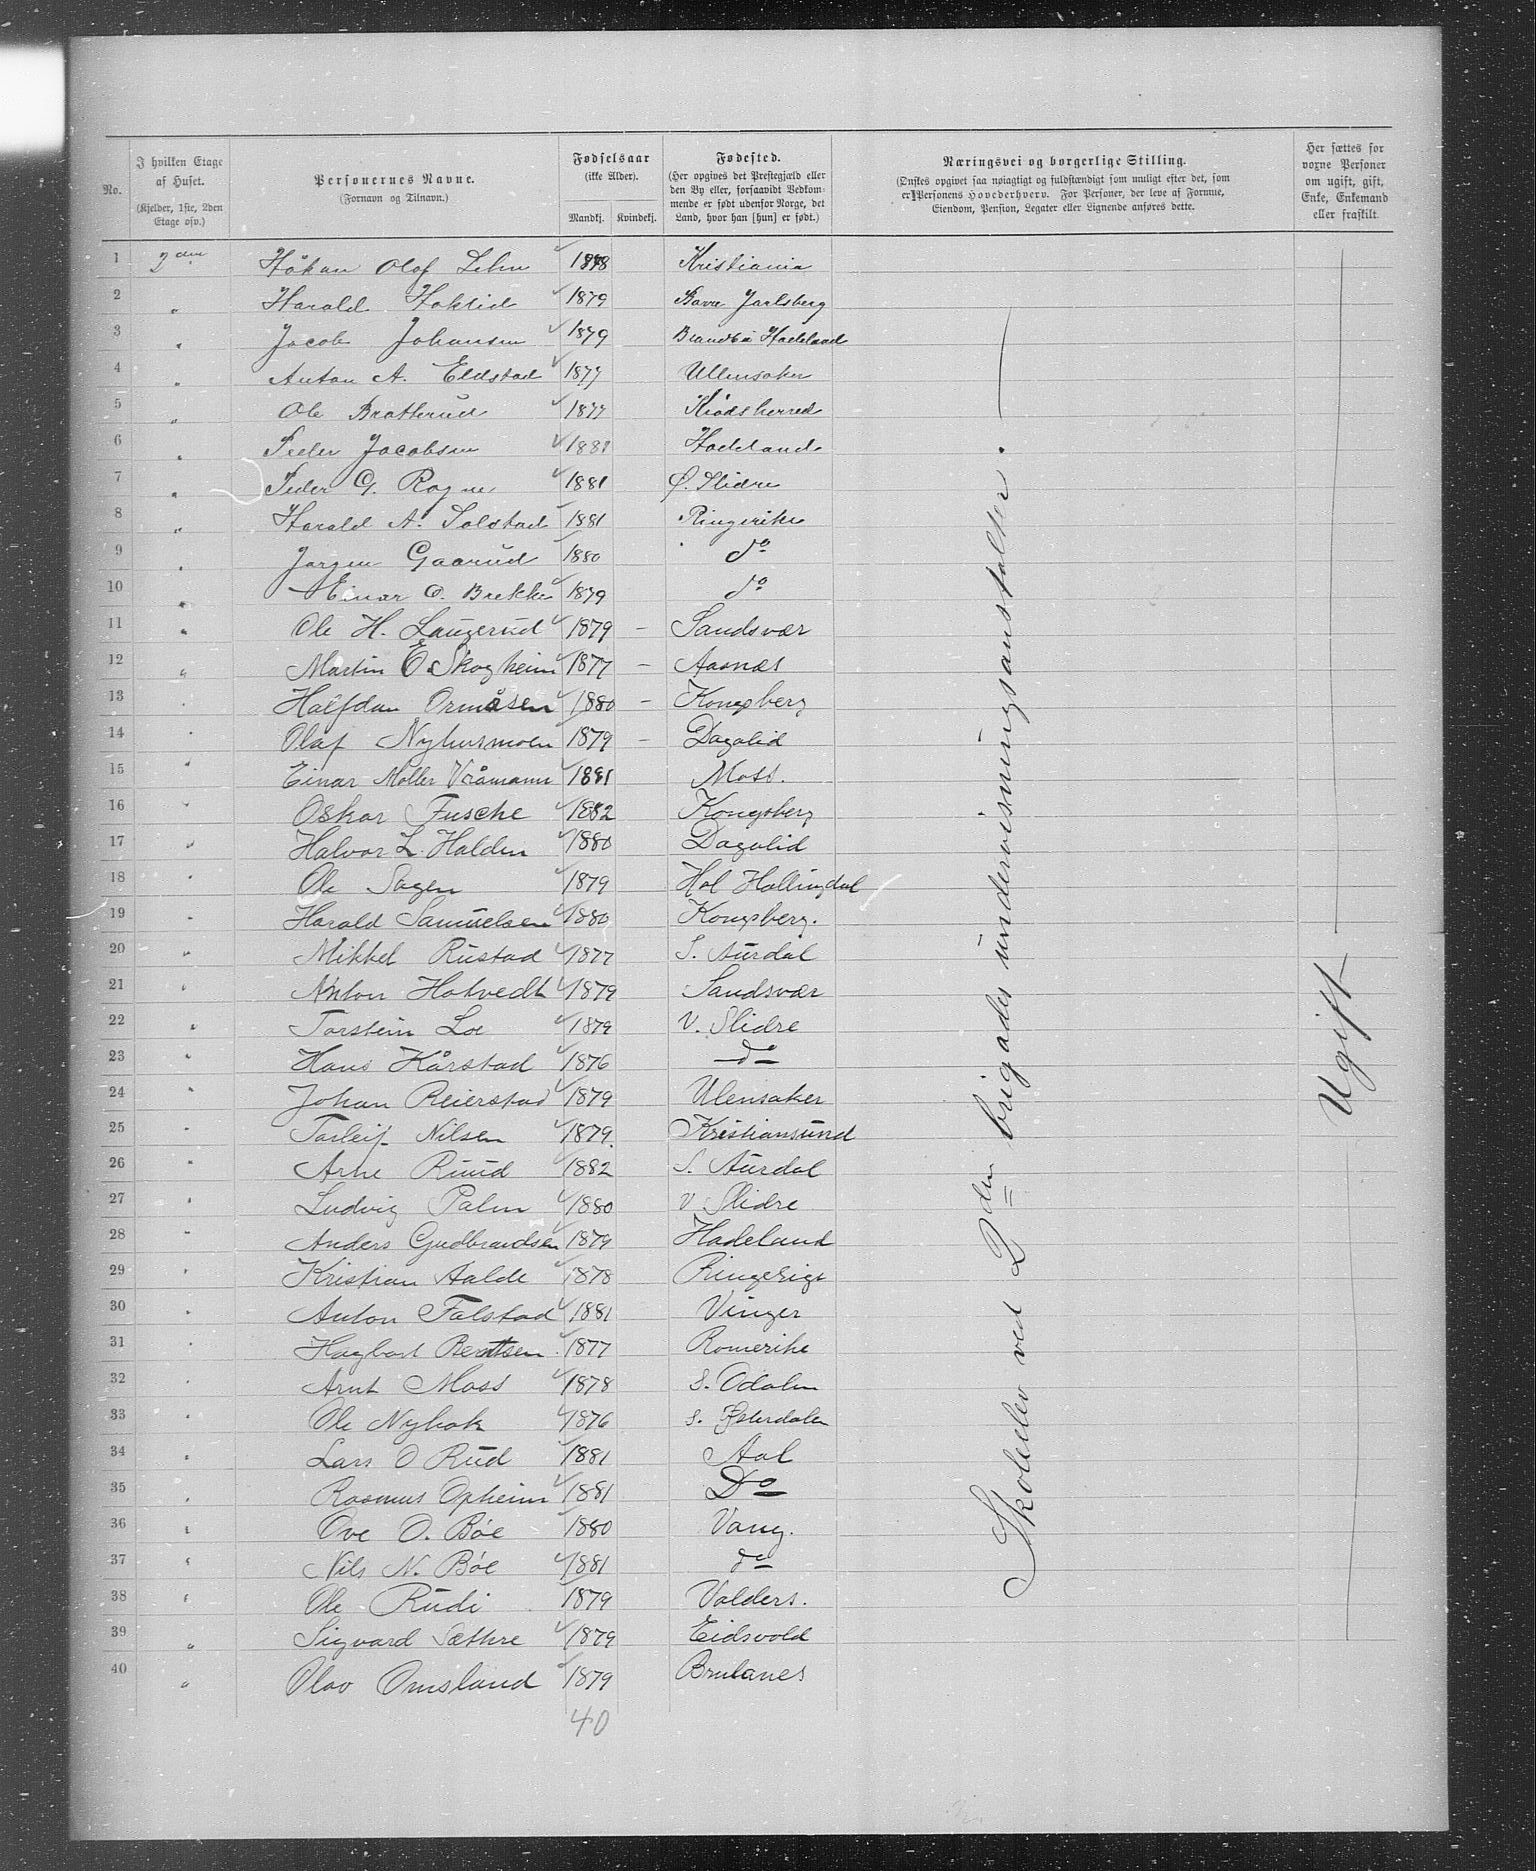 No.
I hvilken Etage af Huset.
(Kjelder, 1ste, 2den Etage osv.)
Personernes Navne.
(Fornavn og Tilnavn.)
Fødselsaar
(ikke Alder).
Mandkj. Kvindekj.
Fødested.
(Her opgives det Prestegjæld eller
den By eller, forsaavidt Vedkom-
mende er født udenfor Norge, det
Land, hvor han [hun] er født.)
Næringsvei og borgerlige Stilling.
(Ønskes opgivet saa nøiagtigt og fuldstændigt som muligt efter det, som
er Personens Hovederhverv. For Personer, der leve af Formue,
Eiendom, Pension, Legater eller Lignende anføres dette.
Her sættes for
voxne Personer
om ugift, gift,
Enke, Enkemand
eller fraskilt.
1 2den Håkan Olaf Lehn 1878 Kristiania
2 " Harald Hoktid 1879 Borre Jarlsberg
3 " Jacob Johansen 1879 Brandbu Hadeland
4 " Anton A. Eldstad 1877 Ullensaker
5 " Ole Bratterud 1877 Krødsherred
6 " Peder Jacobsen 1881 Hadeland
7 " Peder G. Rogne 1881 Ø. Slidre
8 " Harald A. Solstad 1881 Ringerike
9 " Jørgen Gaarud 1880 do
10 " Einar O. Brekke 1879 do
11 " Ole H. Laugerud 1879 – Sandsvær
12 " Martin O. Skogheim 1877 – Aasnæs
13 " Halfdan Ormåsen 1880 – Kongsberg
14 " Olaf Nyhusmoen 1879 – Dagalid
15 " Einar Møller Vråmann 1881 Moss.
16 " Oskar Fusche 1882 Kongsberg
17 " Halvor L. Halden 1880 Dagalid
18 " Ole Sagen 1879 Hol Hallingdal
19 " Harald Samuelsen 1880 Kongsberg.
20 " Mikkel Rustad 1877 S. Aurdal
21 " Anton Hotvedt 1879 Sandsvær
22 " Torstein Loe 1879 V. Slidre
23 " Hans Kårstad 1876 do
24 " Johan Reierstad 1879 Ulensaker
25 " Torleif Nilsen 1879. Kristiansund
26 " Arne Ruud 1882 S. Aurdal
27 " Ludvig Palm 1880 V Slidre
28 " Anders Gudbrandsen 1879 Hadeland
29 " Kristian Aalde 1878 Ringerige
30 " Anton Falstad 1881 Vinger
31 " Hagbart Berntsen 1877 Romerike
32 " Arnt Moss 1878 S. Odalen
33 " Ole Nybak 1876 S. Østerdalen
34 " Lars O Rud 1881 Aal
35 " Rasmus Opheim 1881 Do
36 " Ove O. Bøe 1880 Vang.
37 " Nils N. Bøe 1881 do
38 " Ole Rudi 1879 Valders.
39 " Sigvard Sæthre 1879 Eidsvold
40 " Olav Omsland 1879 Brulanes
40
Skoleelev ved 2den brigades undervisningsanstalter.
Ugift